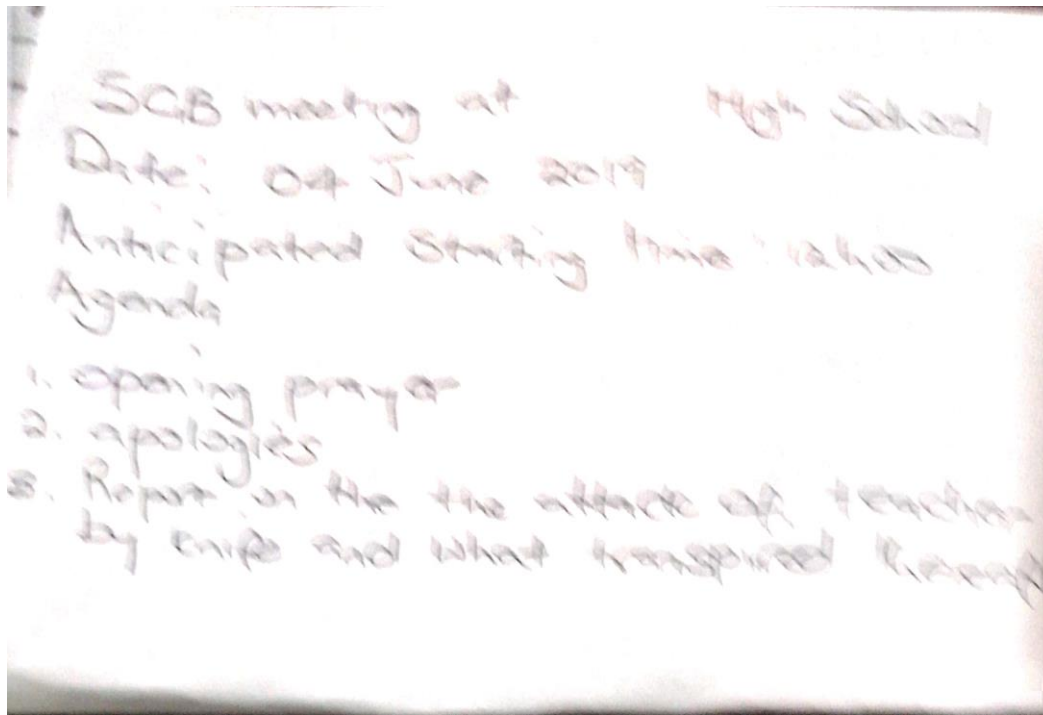 SGB meeting at High School
Date: 04 June 2019
Anticipated Starting time: 12h00
Agenda
1. opening prayer
2. apologies
3. Report on the the attack of teacher
by knife and what transpired